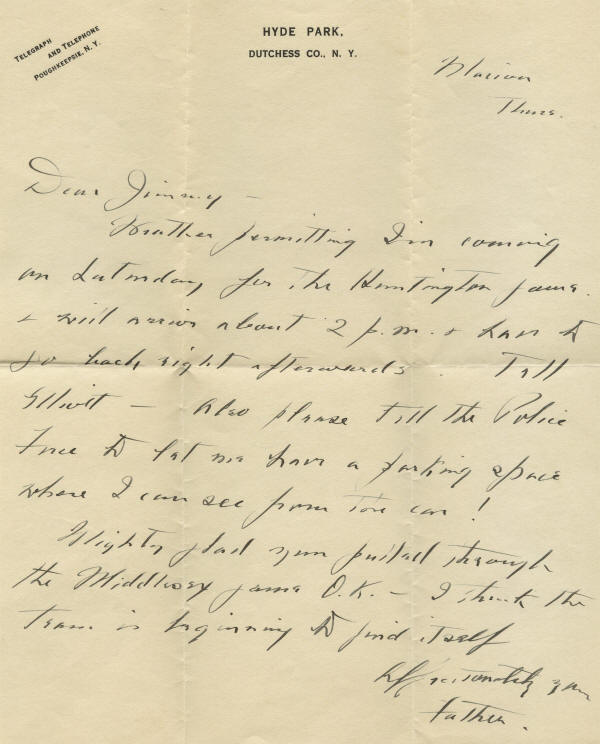 TELEGRAPH
AND TELEPHONE
POUGHKEEPSIE, N.Y.
HYDE PARK,
DUTCHESS CO., N. Y.
Marion
Thurs.
Dear Jimmy –
Weather permitting I'm coming
on Saturday for the Huntington game.
& will arrive about 2 p.m. & have to
go back right afterwards. Tell
Elliott – Also please tell the Police
Force to let me have a parking space
where I can see from the car!
Mighty glad you pulled through
the Middlesex game O.K. – I think the
team is beginning to find itself
Affectionately your
Father.